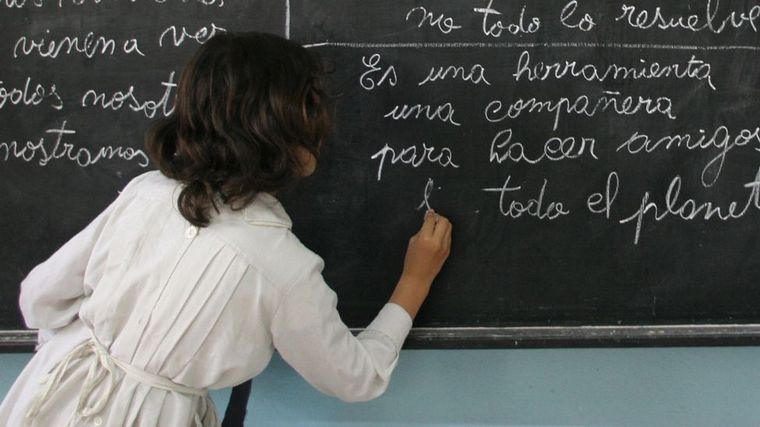 vienen a ver
todos nosot
mostramos
no todo lo resuelve
Es una herramienta
una compañera
para hacer amigos
todo el planet